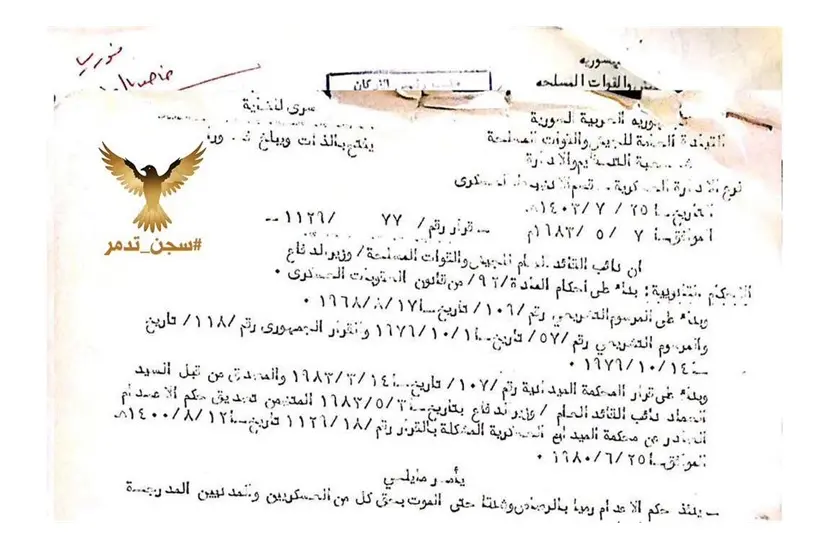 فوريا
الجمهورية العربية السورية
القيادة العامة للجيش والقوات المسلحة
سرى للغاية
يفتح بالذات ويبلغ
شعبة التنظيم والادارة
فرع الادارة العسكرية ـ قسم الانضباط العسكرى
التاريخ ٢٥ / ٧ / ١٤٠٣ هـ
الموافق ٧ / ٥ / ١٩٨٣م
ـ قرار رقم / ٧٧ / ١١٢٩ ــ
#سجن_تدمر
ان نائب القائد العام للجيش والقوات المسلحة / وزير الدفاع
بناء على أحكام المادة /٩٢/ من قانون العقوبات العسكرى ٠
وبناء على المرسوم التشريعي رقم /١٠٩/ تاريخ ١٩٦٨/٨/١٧ ٠
والمرسوم التشريعي رقم /٥٧/ تاريخ ١٩٧٩/١٠/١ والقرار الجمهورى رقم /١١٨/ تاريخ
١٩٧٩/١٠/١٤ ٠
وبناء على قرار المحكمة الميدانية رقم /١٠٧/ تاريخ ١٩٨٣/٣/١٤ والمصدق من قبل السيد
العماد نائب القائد العام / وزير الدفاع بتاريخ ١٩٨٣/٥/٣ المتضمن تصديق حكم الاعدام
الصادر عن محكمة الميدان العسكرية المشكلة بالقرار رقم /١١٢٩/١٨ تاريخ ١٤٠٠/٨/١٢ هـ
الموافق ١٩٨٠/٦/٢٥ ٠
يأمر مايلي
ـ ينفذ حكم الاعدام رميا بالرصاص وشنقا حتى الموت بحق كل من العسكريين والمدنيين المدرجة